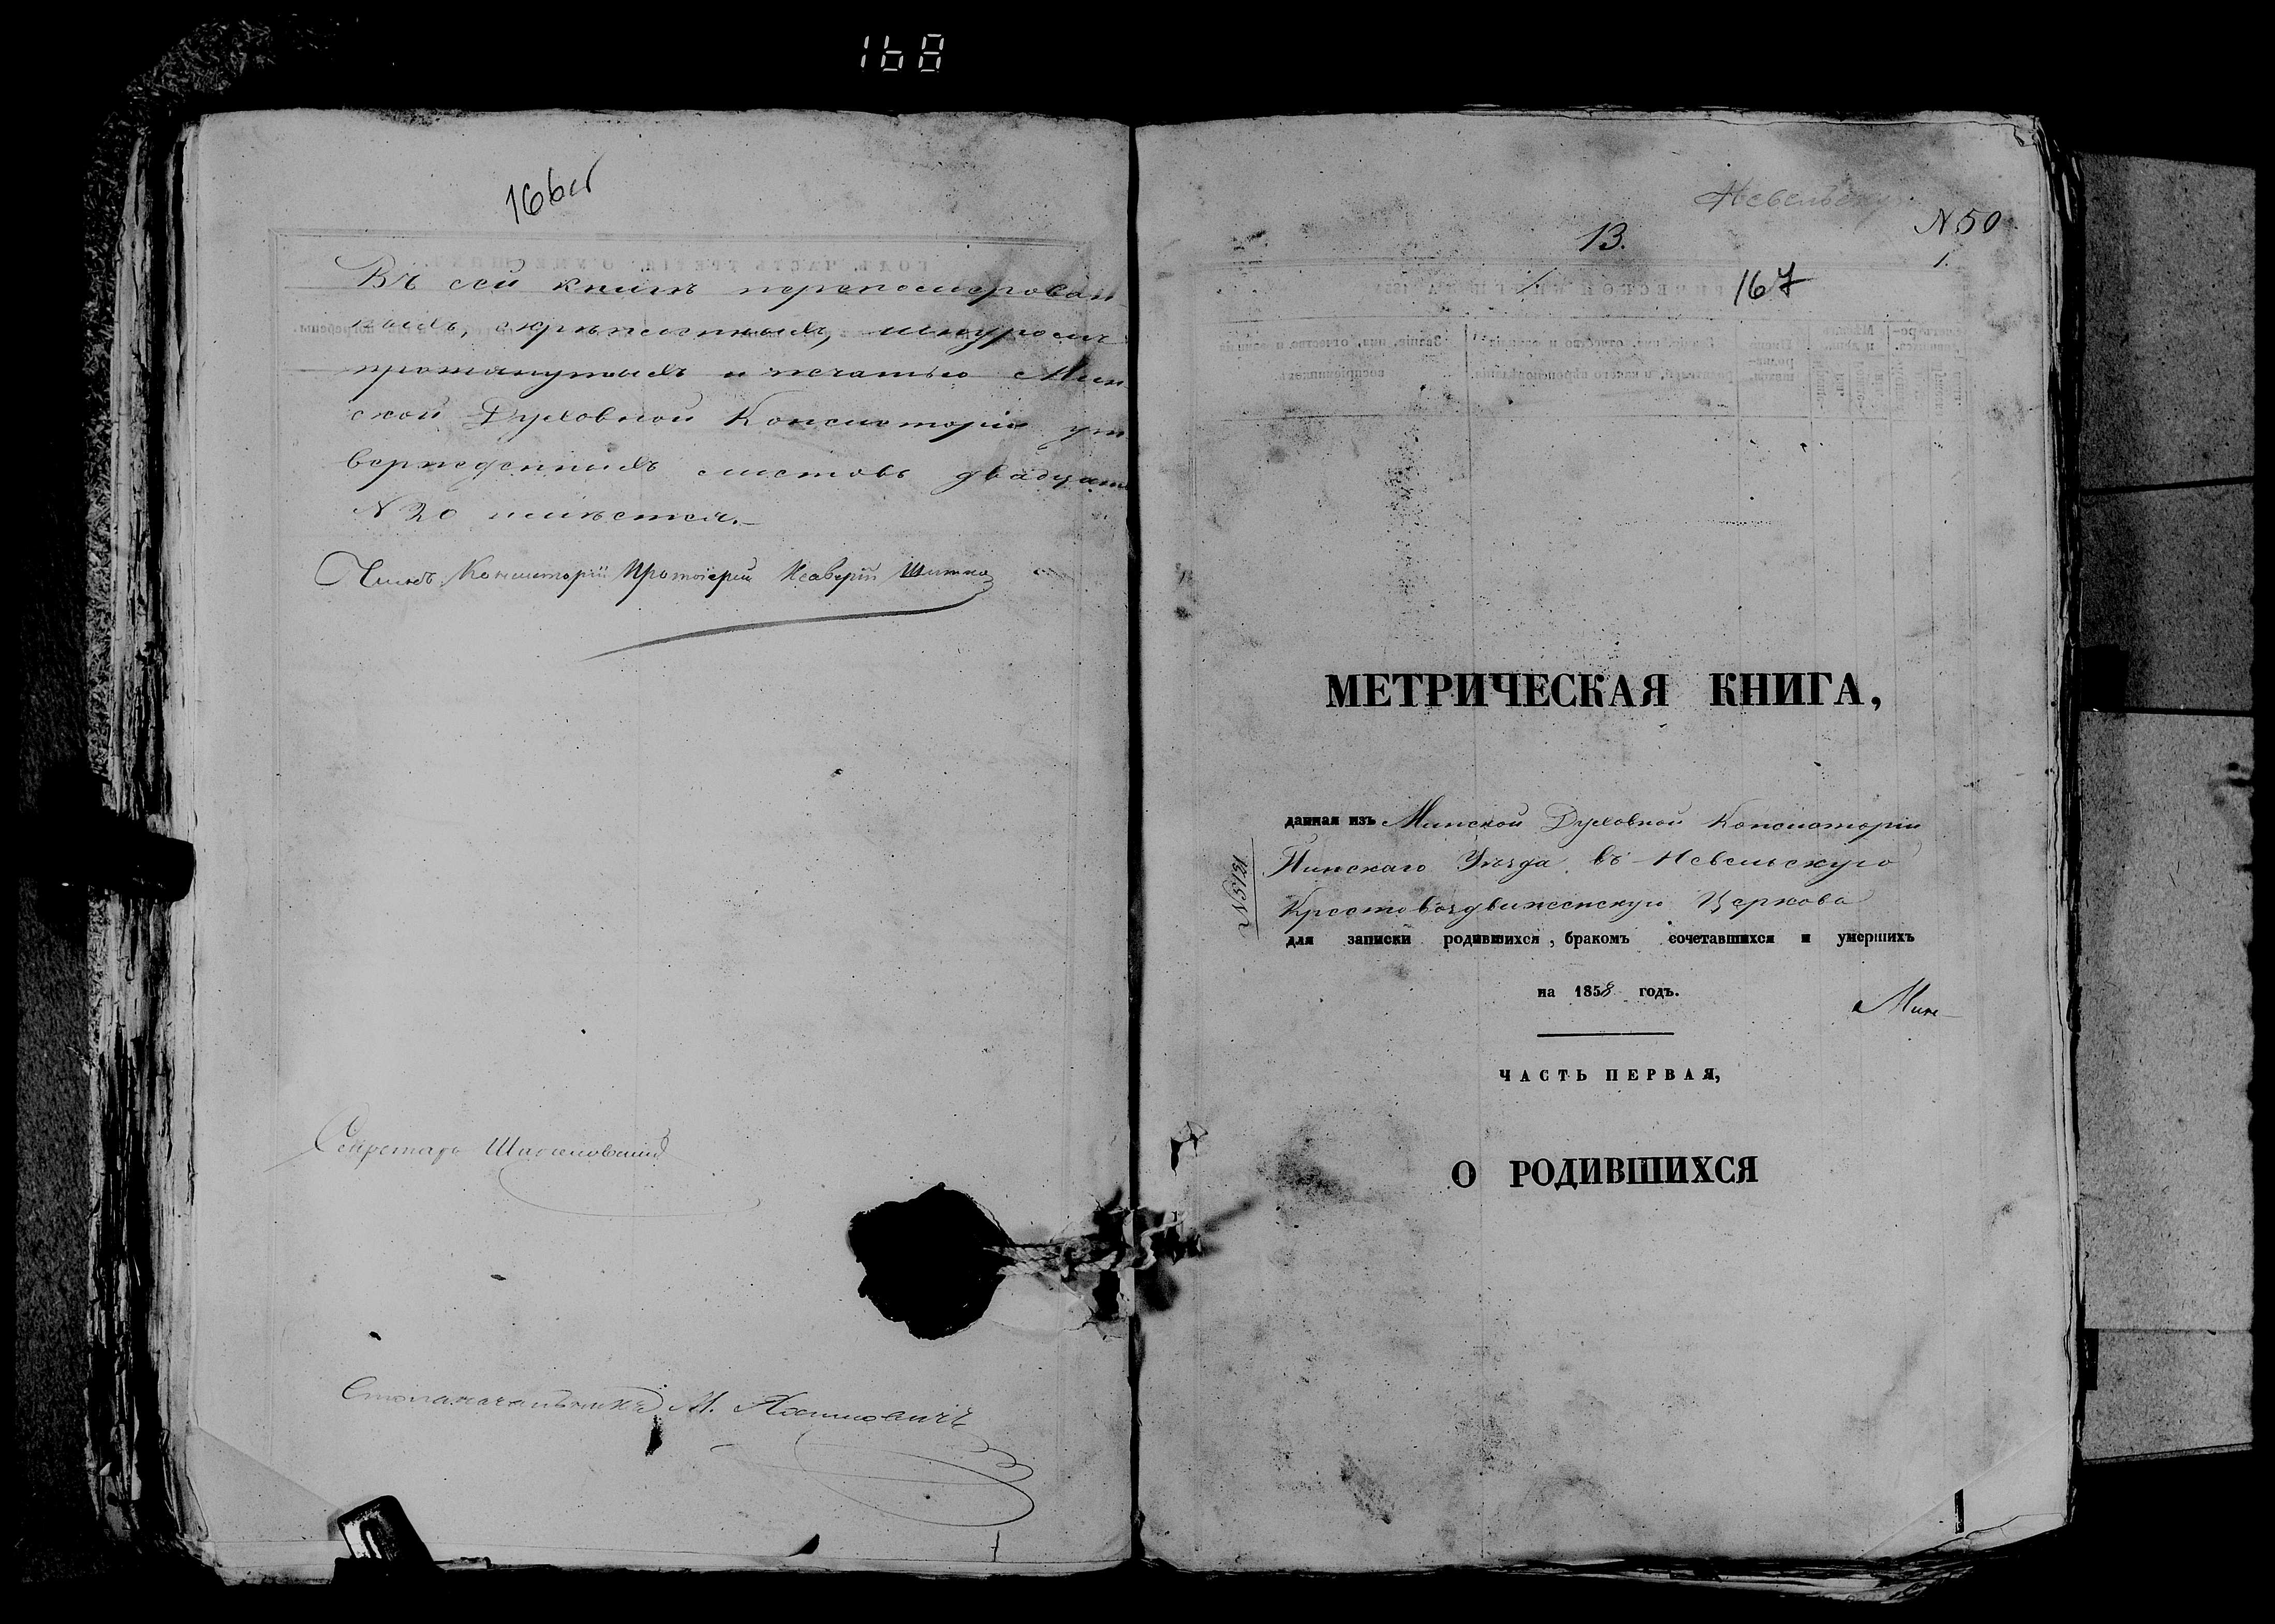 168
166 об
Въ сей книгѣ перенумерован-
ныхъ, скрѣпленныхъ, шнуромъ
протянутыхъ и печатью Мин
ской Духовной Консисторіи ут
вержденныхъ листовъ двадцать
N 20 имѣется.
Членъ Консисторіи Протоіерей Ксаверій
Секретарь
Столоначальникъ М.
Невельскую
N 50
13.
1.
167
МЕТРИЧЕСКАЯ КНИГА,
данная изъ Минской Духовной Консисторіи
Пинскаго Уѣзда въ Невельскую
Крестовоздвиженскую Церковь
N 5131
для записки родившихся, бракомъ сочетавшихся и умершихъ
на 1858 годъ.
Мин-
ЧАСТЬ ПЕРВАЯ,
О РОДИВШИХСЯ